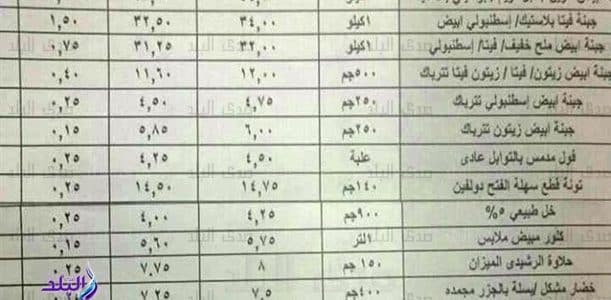 جبنة فيتا بلاستيك/ إسطنبولي ابيض ١كيلو ٣٤,٠٠ ٣٢,٥٠ ١,٥٠
جبنة ابيض ملح خفيف/ فيتا/ إسطنبولي ١كيلو ٣٢,٠٠ ٣١,٢٥ ٠,٧٥
جبنة ابيض زيتون/ فيتا / زيتون فيتا تترباك ٥٠٠جم ١٢,٠٠ ١١,٦٠ ٠,٤٠
جبنة ابيض إسطنبولي تتراك ٢٥٠جم ٤,٧٥ ٤,٥٠ ٠,٢٥
جبنة ابيض زيتون تترباك ٢٥٠جم ٦,٠٠ ٥,٨٥ ٠,١٥
فول مدمس بالتوابل عادى علبة ٤,٥٠ ٤,٢٥ ٠,٢٥
تونة قطع سهلة الفتح دولفين ١٤٠جم ١٤,٧٥ ١٤,٥٠ ٠,٢٥
خل طبيعي ٥% ٩٠٠جم ٤,٢٥ ٤,٠٠ ٠,٢٥
كلور مبيض ملابس ١لتر ٥,٧٥ ٥,٦٠ ٠,١٥
حلاوة الرشيدى الميزان ١٥٠جم ٨ ٧,٧٥ ٠,٢٥
خضار مشكل /بسلة بالجزر مجمده ٤٠٠جم ٧,٥ ٧,٢٥
صدى البلد